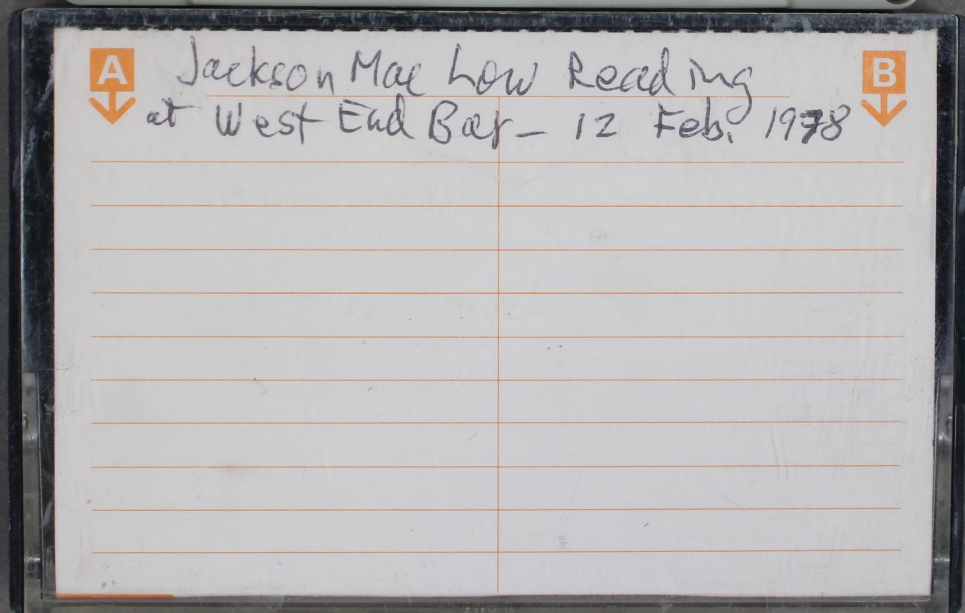 A Jackson Mac Low Reading B
at West End Bar – 12 Feb. 1978